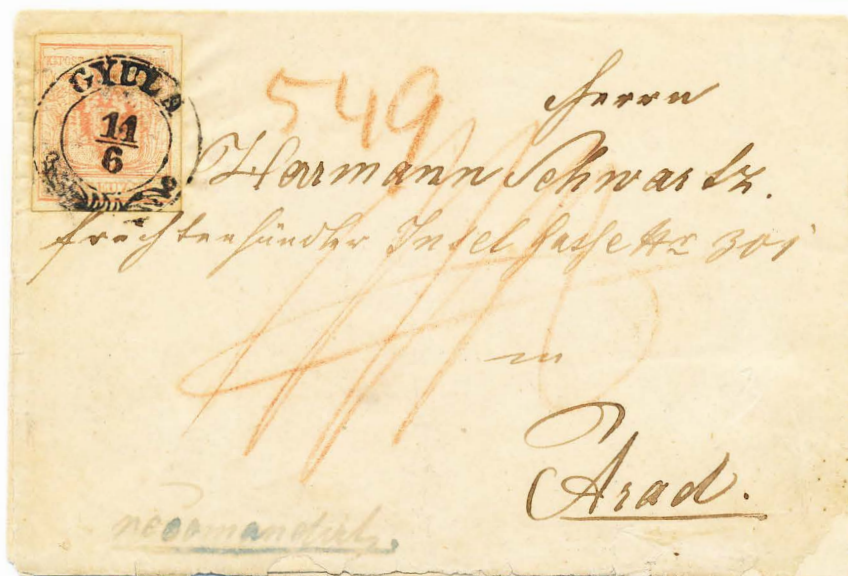 GYULA
11
6
549
Herrn
Harmann Schwartz.
Früchtenhändler Insel Gasse Nr 301
in
Arad.
recomandirt